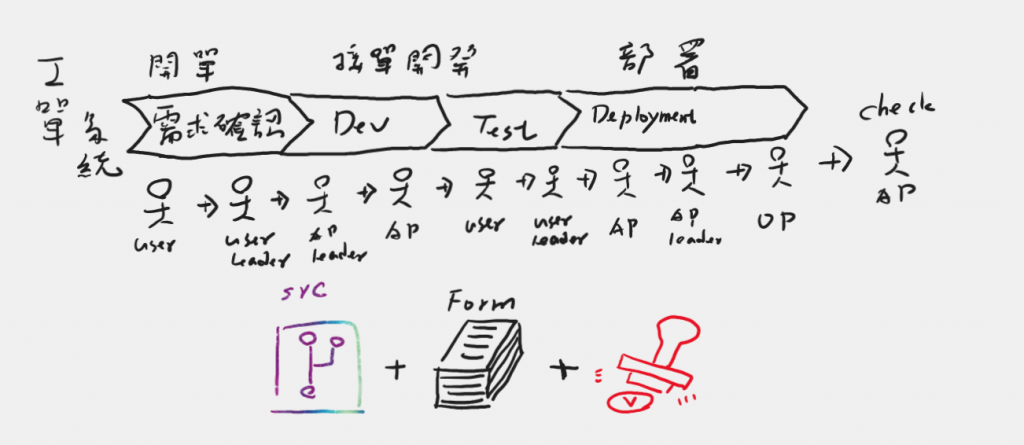 工單系統
開單
接單開發
部署
需求確認
Dev
Test
Deployment
check
user
user leader
AP leader
AP
user
user leader
AP
AP leader
OP
AP
src
Form